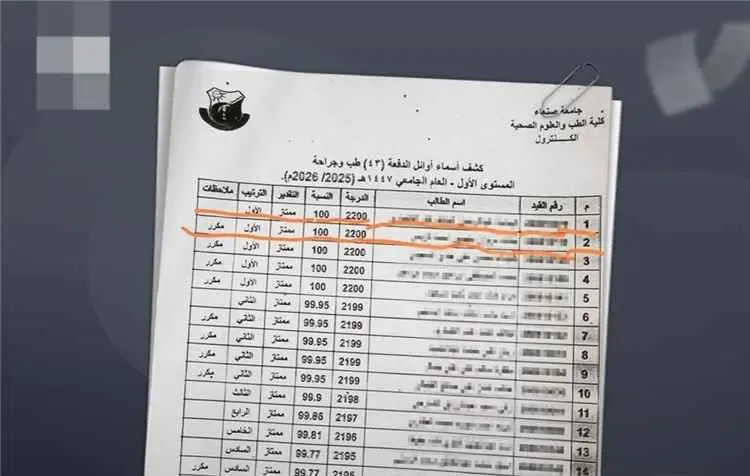 جامعة صنعاء
كلية الطب والعلوم الصحية
الكنترول
كشف أسماء أوائل الدفعة (٤٣) طب وجراحة
المستوى الأول - العام الجامعي ١٤٤٧هـ (2025/ 2026م).
م رقم القيد اسم الطالب الدرجة النسبة التقدير الترتيب ملاحظات
1 2200 100 ممتاز الأول
2 2200 100 ممتاز الأول مكرر
3 2200 100 ممتاز الأول مكرر
4 2200 100 ممتاز الأول مكرر
5 2199 99.95 ممتاز الثاني
6 2199 99.95 ممتاز الثاني مكرر
7 2199 99.95 ممتاز الثاني مكرر
8 2199 99.95 ممتاز الثاني مكرر
9 2199 99.95 ممتاز الثاني مكرر
10 2198 99.9 ممتاز الثالث
11 2197 99.86 ممتاز الرابع
12 2196 99.81 ممتاز الخامس
13 2195 99.77 ممتاز السادس
14 99.77 ممتاز السادس مكرر